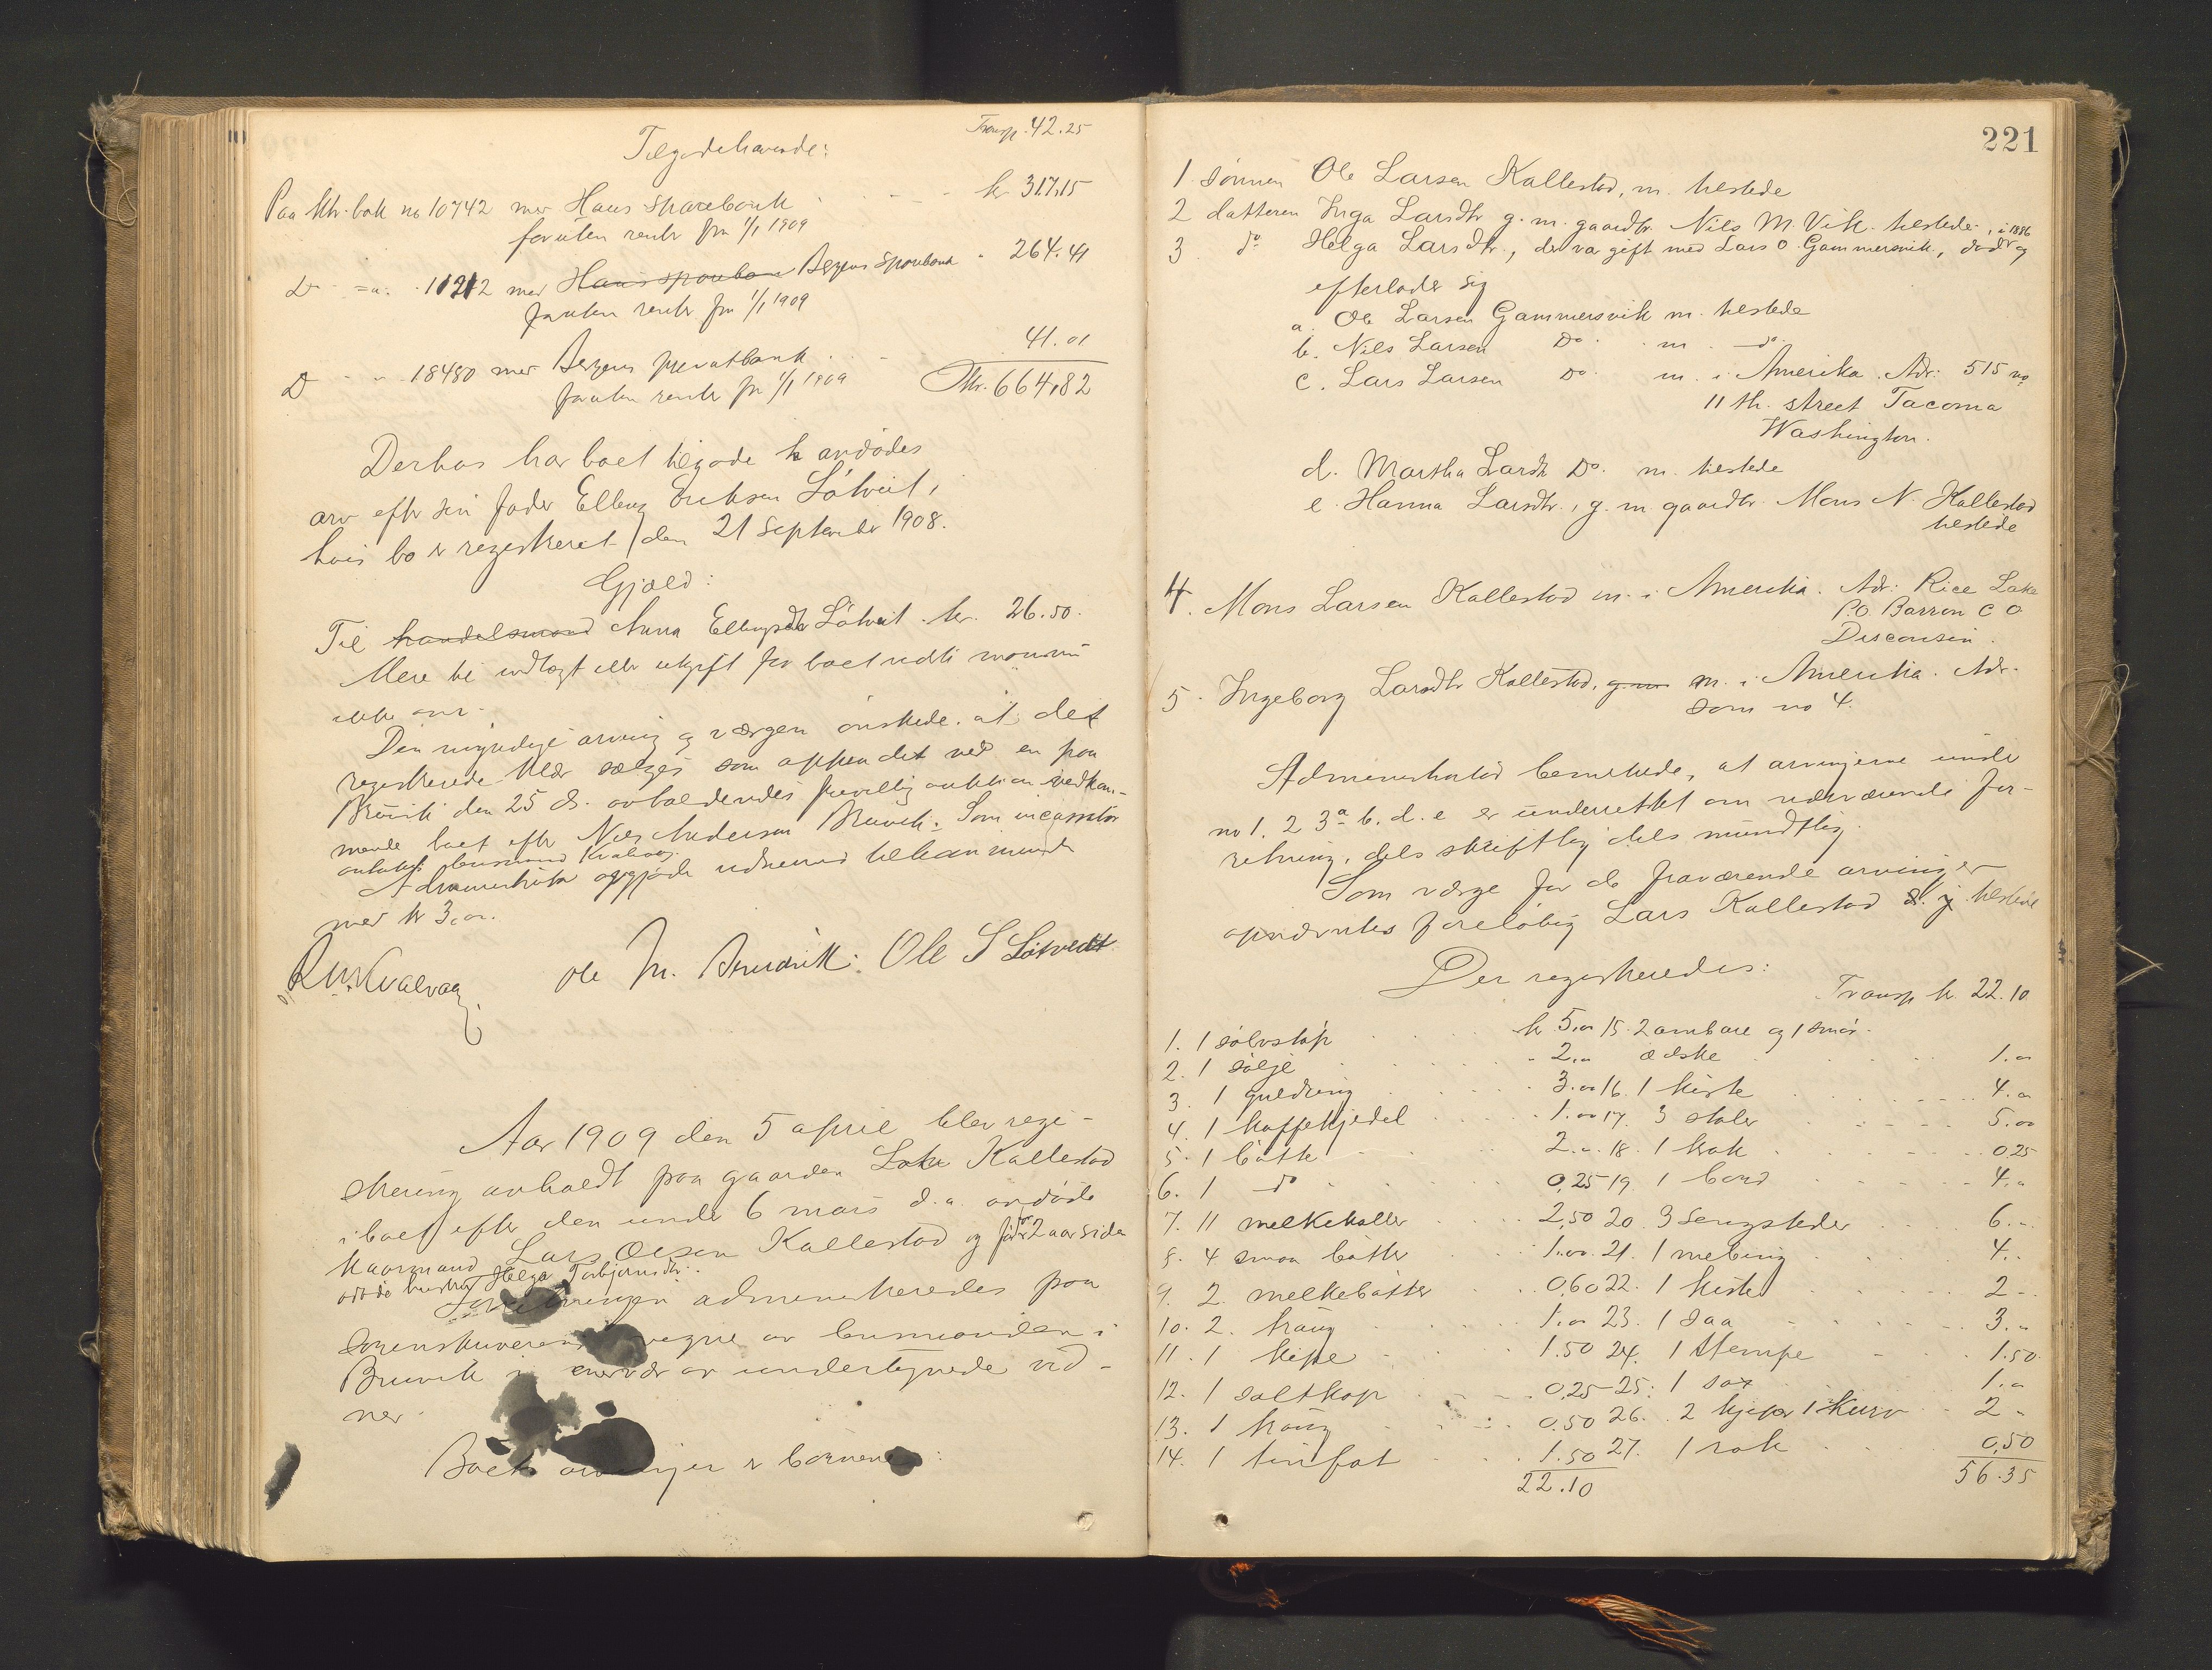 Transp. 42.25
Tilgodehavende:
Paa ktr. bok no 10742 mer Haus sparebank kr 317,15
foruten renter fra 1/1 1909
D 11212 mer Haus spareban Bergens Sparebank 264.41
foruten renter fra 1/1 1909
D 18480 mer Bergens privatbank 41.01
foruten renter fra 1/1 1909 Kr. 664,82
Derhos har boet tilgode avdödes
arv efter sin fader Elling Eriksen Låtveit,
hvis bo er registreret den 21 September 1908.
Gjæld:
Til handelsmand Anna Ellingsdtr Låtveit kr. 26.50.
Mere til indtægt eller utgift for boet
Den myndige arving og værgen önskede at det
registrerede klær sælges som opprendet ved en paa
Bruvik den 25 ds. avholdendes frivillig auktion vedkom-
mende boet efter Nils Andersen Bruvik. Som incassator
antokes lensmand Kvalvaag.
Administrator opgjorde
med kr 3.00.
R M Kvalvaag Ole M. Bruvik. Ole S Låtvedt
Aar 1909 den 5 april blev regi-
strering avholdt paa gaarden Kallestad
i boet efter den under 6 mars d.a. avdöde
kaarmand Lars Olsen Kallestad og for 2 aar siden
avdöde hustru Helga Torbjörnsdtr.
Forretningen administreredes paa
Sorenskriverens vegne av lensmanden i
Bruvik i nærvær av undertegnede vid-
ner.
Boets arvinger er börnene:
221
1 sönnen Ole Larsen Kallestad, m. tilstede
2 datteren Inga Larsdtr g. m. gaardbr. Nils M. Vik. tilstede
3 do Helga Larsdtr., der var gift med Lars O. Gammersvik, död i 1886 og
efterlader sig
a. Ole Larsen Gammersvik m. tilstede
b. Nils Larsen Do m. do
c. Lars Larsen Do m. i Amerika. Adr: 515 no
11 th. street Tacoma
Washington.
d. Martha Larsdtr Do. m. tilstede
e. Hanna Larsdtr., g. m. gaardbr. Mons N. Kallestad
tilstede
4. Mons Larsen Kallestad m. i Amerika. Adr: Rice Lake
P.O. Barron C O
Disconsin.
5. Ingeborg Larsdtr Kallestad, g.m. m. i Amerika. Adr.
som no 4.
Administrator bemerkede, at arvingerne under
no 1. 2 3 a b. d. e er underrettet om nærværende for-
retning, dels skriftlig dels mundtlig.
Som værge for de fraværende arvinger
opnævntes foreløbig Lars Kallestad tilstede
Der registreredes:
Transp kr. 22.10
1. 1 sölvstöp kr 5,00 15. 2 ambare og 1 smör-
2. 1 sölje 2.00 æske 1.00
3. 1 guldring 3.00 16. 1 kiste 4.00
4. 1 kaffekjedel 1.00 17. 3 stoler 5.00
5. 1 bötte 2.00 18. 1 krak 0,25
6. 1 do 0,25 19. 1 bord 4.00
7. 11 melkekoller 2,50 20. 3 Sengsteder 6.-
8. 4 smaa bötter 1.00 21. 1 mebing 4.-
9. 2. melkebötter 0,60 22. 1 kiste 2-
10. 2. kraug 1.00 23. 1 saa 3.-
11. 1 kipe 1.50 24. 1 Stampe 1.50
12. 1 saltkop 0,25 25. 1 sax 1.00
13. 1 kraug 0.50 26. 2 kjeper 1 kurv 2-
14. 1 tinfat 1.50 27. 1 rok 0,50
22.10 56.35